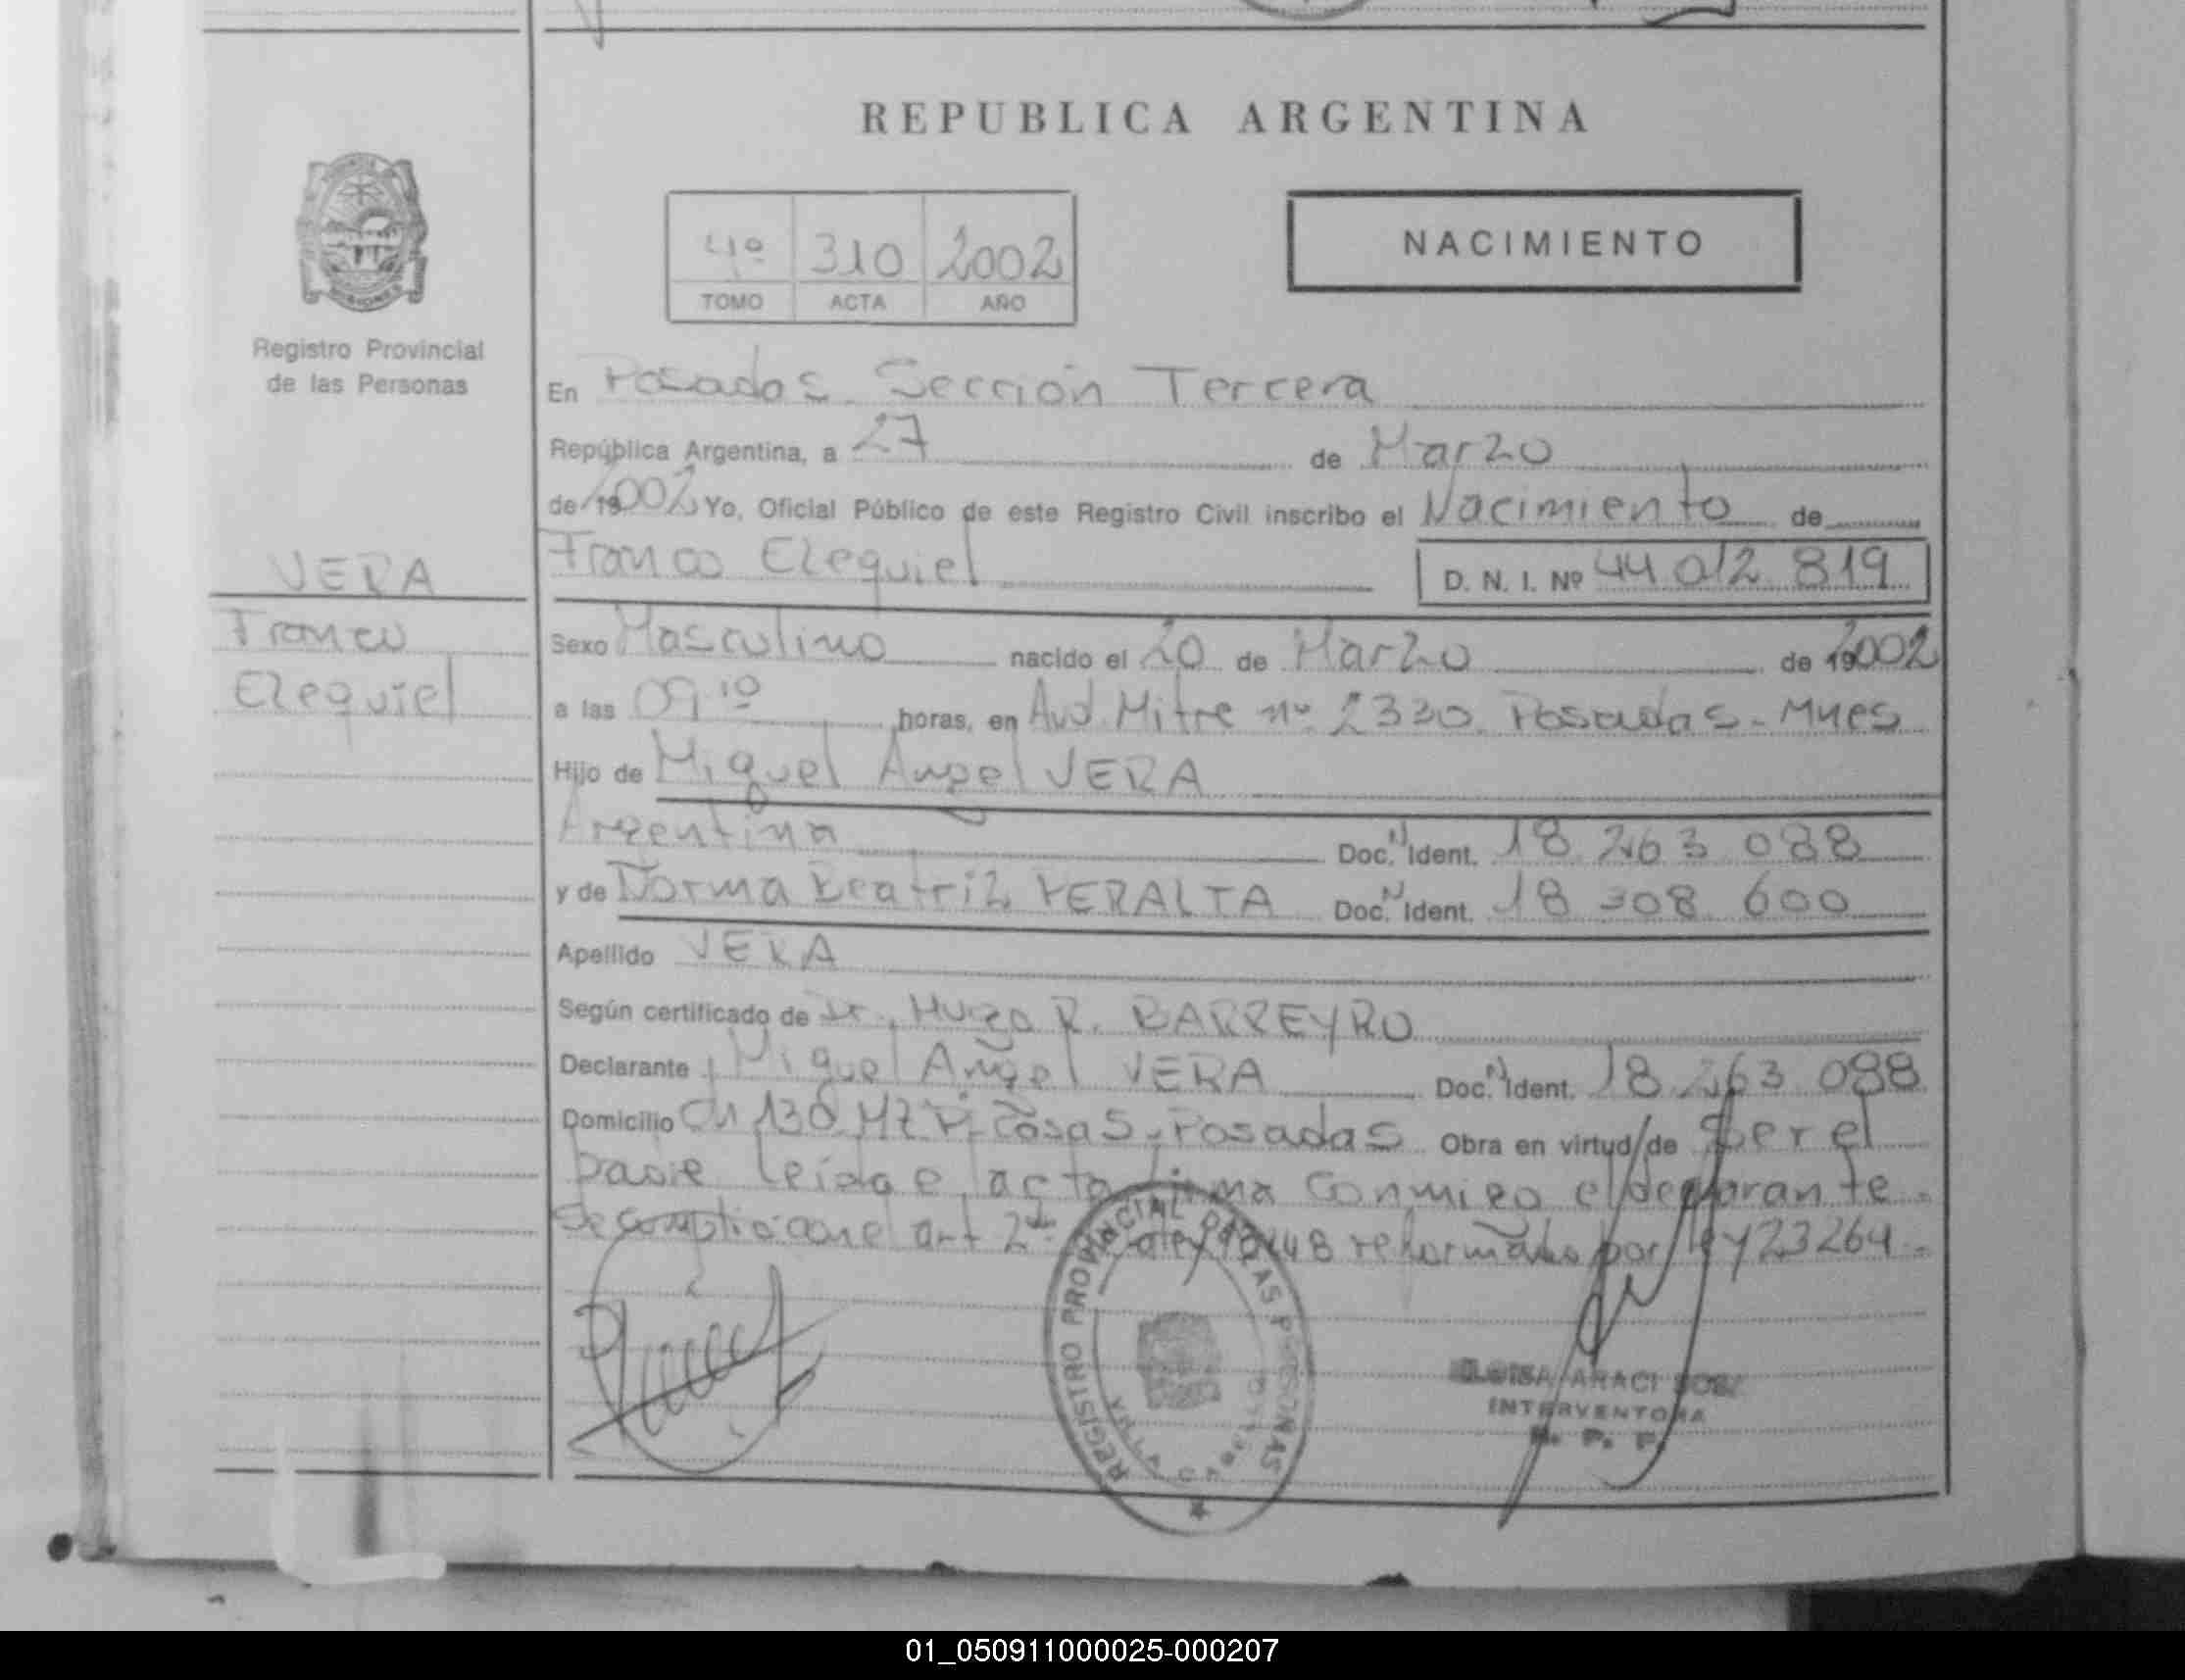 REPUBLICA ARGENTINA
4º 310 2002
TOMO ACTA AÑO
NACIMIENTO
Registro Provincial
de las Personas
En Posadas Sección Tercera
República Argentina, a 27 de Marzo
de 192002 Yo, Oficial Público de este Registro Civil inscribo el Nacimiento de
Franco Ezequiel D. N. I. Nº 44 012 819
VERA
Franco
Ezequiel
Sexo Masculino nacido el 20 de Marzo de 192002
a las 09 10 horas, en Avd. Mitre nº 2330 Posadas - Mnes
Hijo de Miguel Angel VERA
Argentina Doc. N Ident. 18 263 088
y de Norma Beatriz PERALTA Doc. N Ident. 18 308 600
Apellido VERA
Según certificado de Dr. Hugo R. BARREYRO
Declarante Miguel Angel VERA Doc. N Ident. 18 263 088
Domicilio Ch 130 Mz Casas Posadas Obra en virtud de Ser el
padre leída e acta firma conmigo el declarante
Se cumplio con el art 2º ley 18248 reformado por ley 23264
REGISTRO PROVINCIAL DE LAS PERSONAS
VILLA CABELLO
ARACI
INTERVENTORA
R. P. P.
01_050911000025-000207